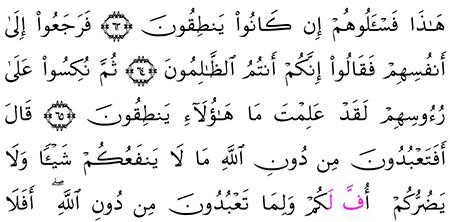 هَٰذَا فَسْـَٔلُوهُمْ إِن كَانُوا۟ يَنطِقُونَ ﴿٦٣﴾ فَرَجَعُوٓا۟ إِلَىٰٓ
أَنفُسِهِمْ فَقَالُوٓا۟ إِنَّكُمْ أَنتُمُ ٱلظَّـٰلِمُونَ ﴿٦٤﴾ ثُمَّ نُكِسُوا۟ عَلَىٰ
رُءُوسِهِمْ لَقَدْ عَلِمْتَ مَا هَـٰٓؤُلَآءِ يَنطِقُونَ ﴿٦٥﴾ قَالَ
أَفَتَعْبُدُونَ مِن دُونِ ٱللَّهِ مَا لَا يَنفَعُكُمْ شَيْـًٔا وَلَا
يَضُرُّكُمْ أُفٍّ لَّكُمْ وَلِمَا تَعْبُدُونَ مِن دُونِ ٱللَّهِ ۖ أَفَلَا